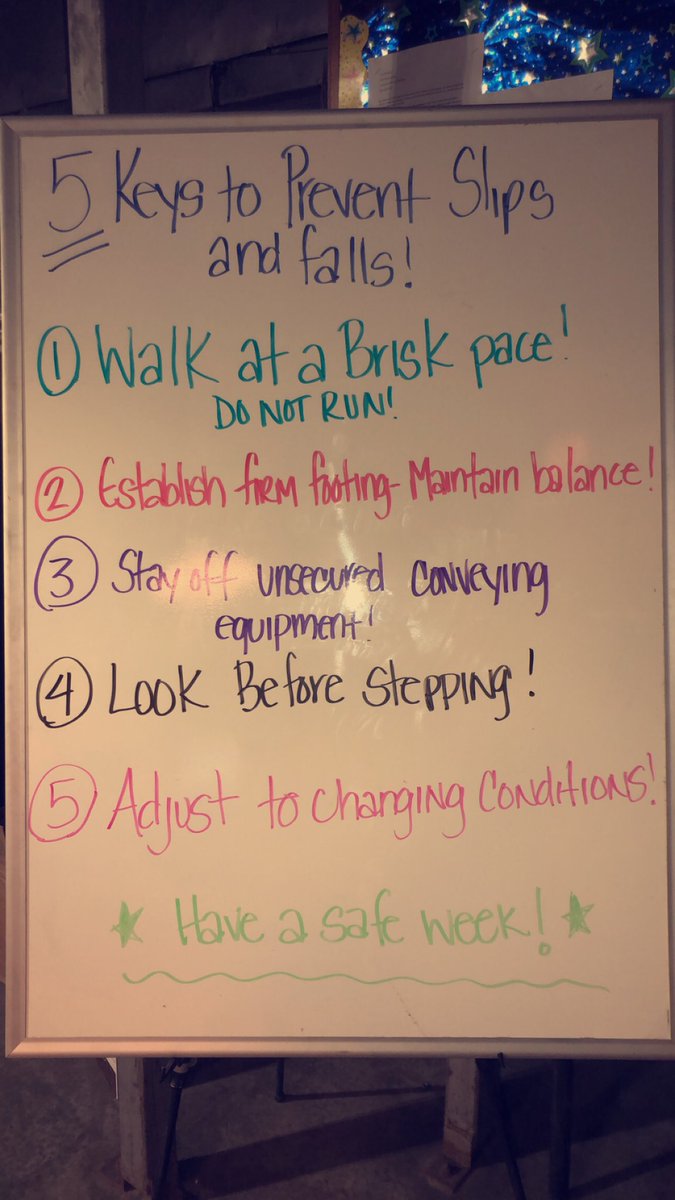 5 Keys to Prevent Slips
and falls!
① Walk at a Brisk pace!
DO NOT RUN!
② Establish firm footing- Maintain balance!
③ Stay off unsecured conveying
equipment!
④ Look Before Stepping!
⑤ Adjust to changing Conditions!
★ Have a safe week! ★